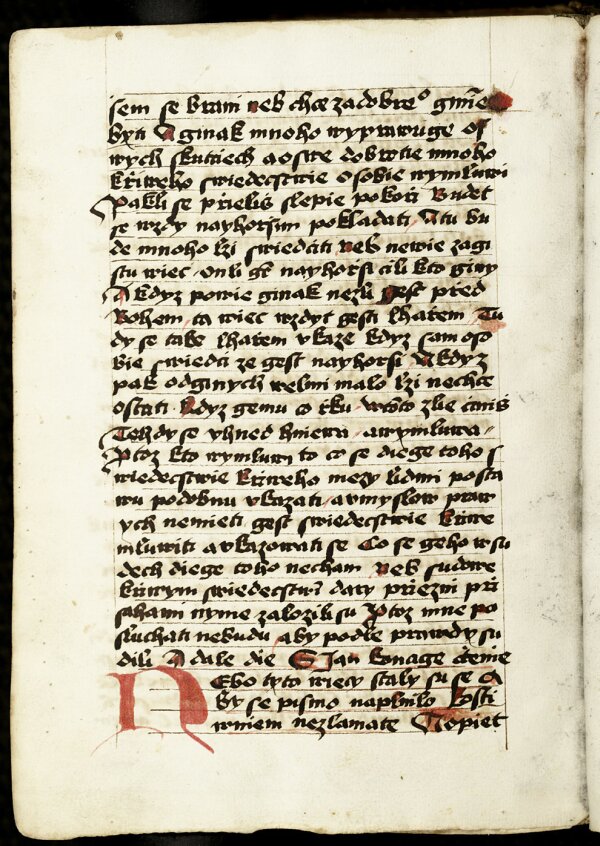 sem se brani neb chce za dobreº gmie
byti A ginak mnoho wyprawuge os
wych skutciech a oswe dobrotie mnoho
křiweho swiedecstwie o sobie wymluwi
Pakli se przielis slepie pokoři Budet
se wzdy nayhorsim pokladati A tu bu
de mnoho lzi swiedciti neb newie zagi
stu wiec onli gt nayhorsi cili kto giny
A kdyz powie ginak nezli gest przed
Bohem ta wiec wzdyt gesti lharem Tu
dy se take lharem vkaze kdyz sam oso
bie swiedci ze gest nayhorsi A kdyz
pak od ginych welmi malo lzi nechce
ostati Kdyz gemu co řku zle cinis
Tehdy se vhned hniewa a wymluwa
Ptoz kto wymluwi to co se diege toho s
wiedecstwie křiweho mezy lidmi posta
wu podobnu vkazati a vmyslow praw
ych nemieti gest swiedecstwie křiwe
mluwiti a vkazowati se Co se geho w su
dech diege toho necham neb sudowe
křiwym swiedecstwi dary przieznii při
sahami nyme zalozili su Ptoz mne po
sluchati nebudu aby podle prawdy su
dili A dale die S Jan konage čtenie
Nebo tyto wiecy staly su se A
by se pismo naplnilo Kosti
w niem nezlamate Nopiet